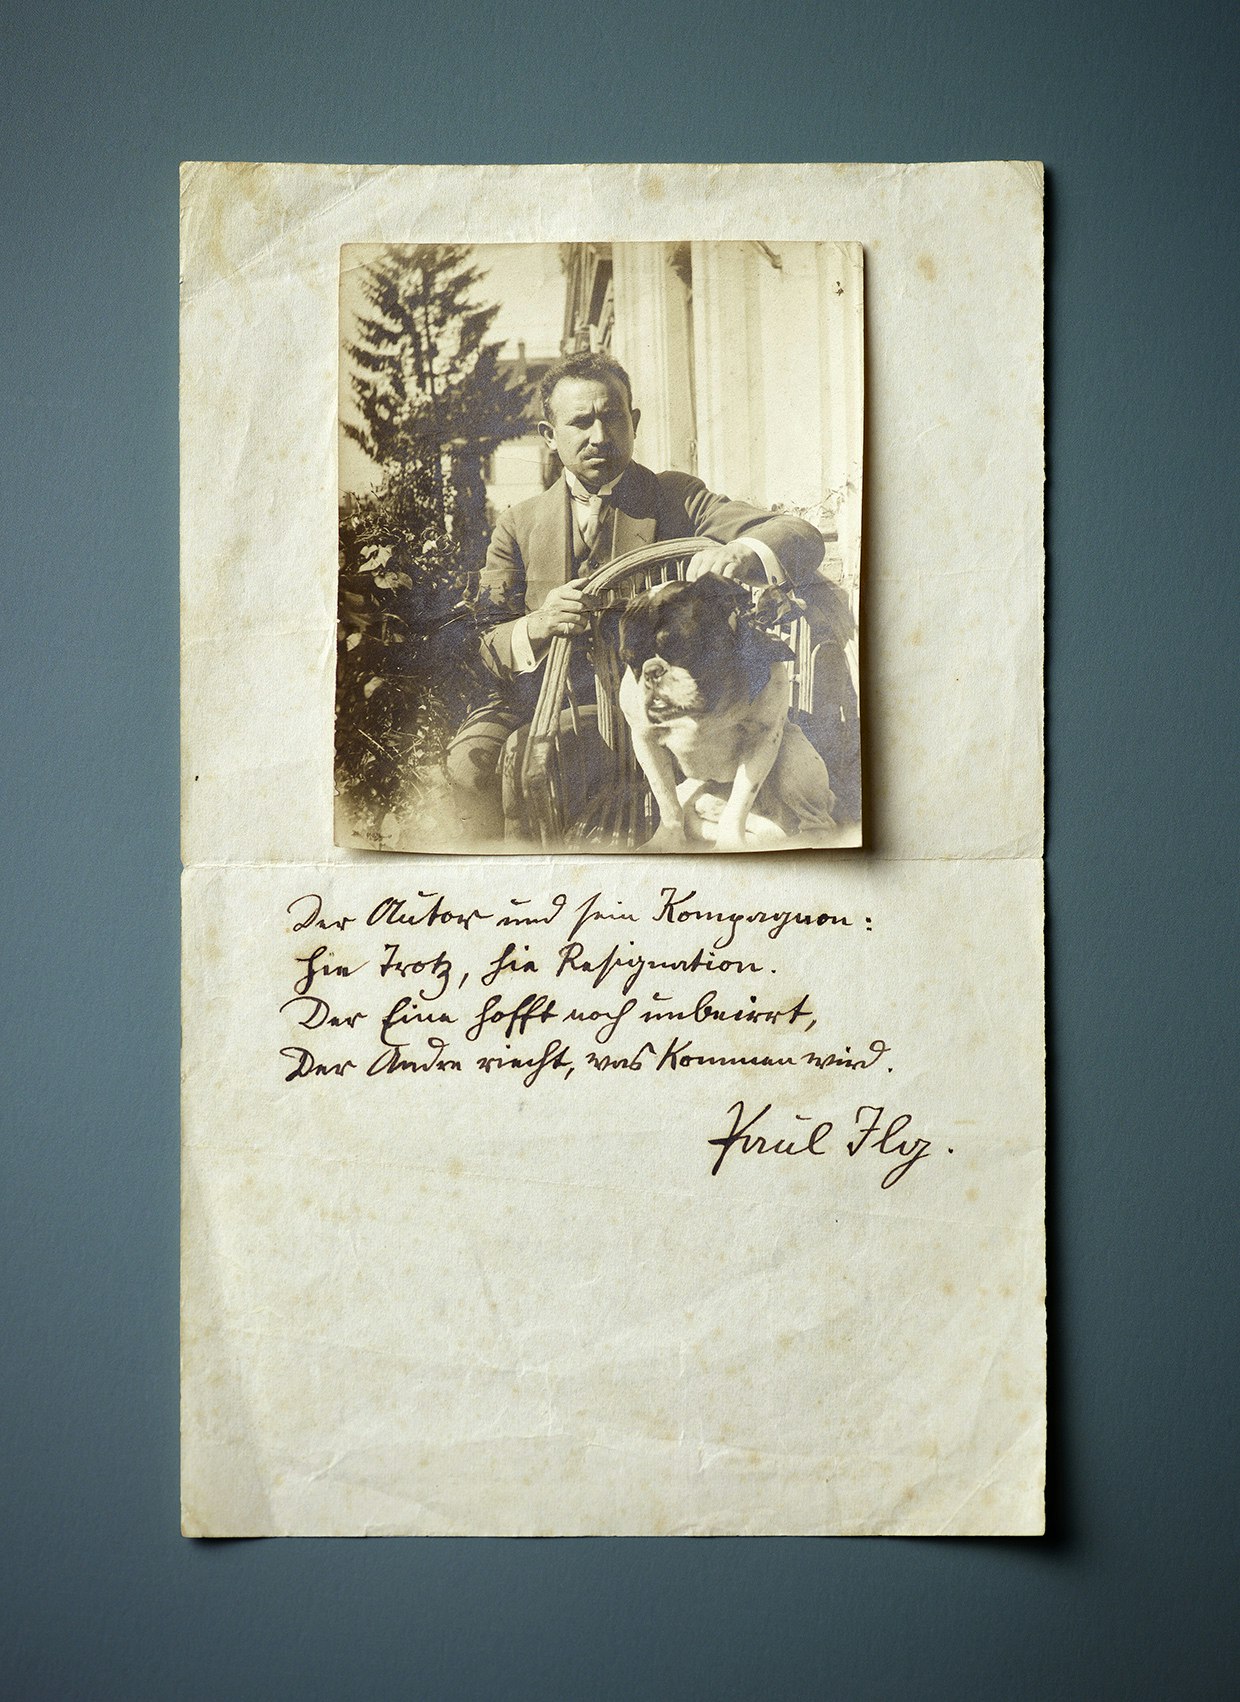 Der Autor und sein Kompagnon:
hie Trotz, hie Resignation.
Der Eine hofft noch unbeirrt,
Der Andre riecht, was kommen wird.
Paul Ilg.